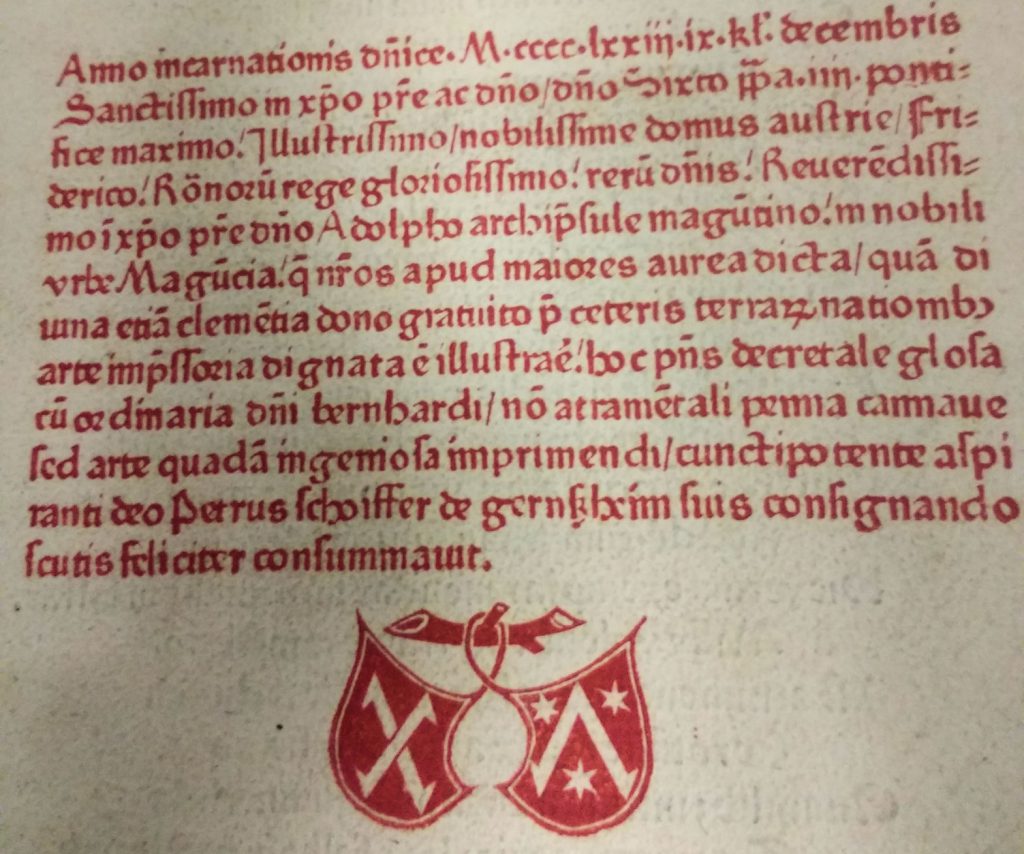 Anno incarnationis dn̄ice. M.cccc.lxxiij.ix.kl'. decembris
Sanctissimo in xp̄o pr̄e ac dn̄o/dn̄o Sixto pp̄a.iiij. ponti⸗
fice maximo! Illustrissimo/nobilissime domus austrie/Fri⸗
derico! Rōnorū rege gloriosissimo! rerū dn̄is! Reuerēdissi⸗
mo ī xp̄o pr̄e dn̄o Adolpho archip̄sule magūtino! in nobili
vrbe Magūcia! q̄ nr̄os apud maiores aurea dicta/quā di
uina etiā clemētia dono gratuito p̄ ceteris terraꝝ nationibꝰ
arte imp̄ssoria dignata ē illustraē! hoc pn̄s decretale glosa
cū ordinaria dn̄i bernhardi/nō atramētali penna cannaue
sed arte quadā ingeniosa imprimendi/cunctipotente aspi
ranti deo Petrus schoiffer de gernsheim suis consignando
scutis feliciter consummauit.